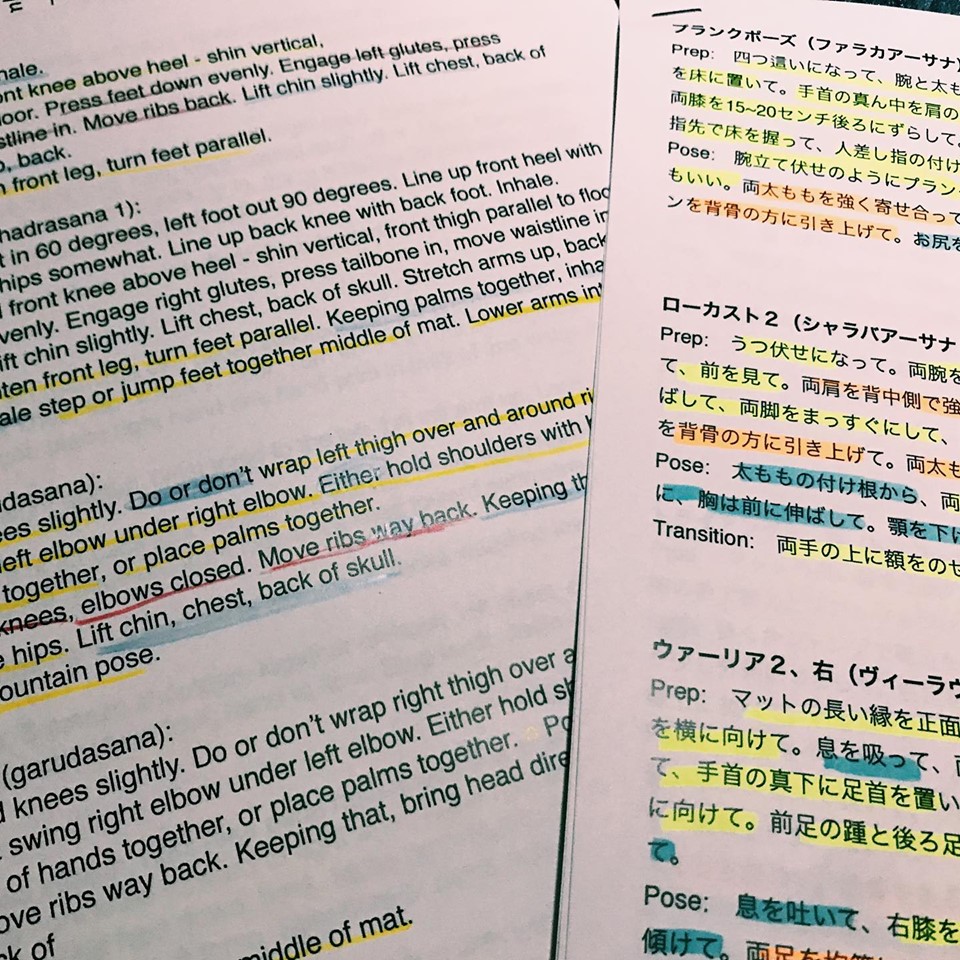 hale.
ont knee above heel - shin vertical,
loor. Press feet down evenly. Engage left glutes, press
stline in. Move ribs back. Lift chin slightly. Lift chest, back of
o, back.
n front leg, turn feet parallel.
hadrasana 1):
t in 60 degrees, left foot out 90 degrees. Line up front heel with
hips somewhat. Line up back knee with back foot. Inhale.
d front knee above heel - shin vertical, front thigh parallel to floo
venly. Engage right glutes, press tailbone in, move waistline in
ift chin slightly. Lift chest, back of skull. Stretch arms up, back
hten front leg, turn feet parallel. Keeping palms together, inha
ale step or jump feet together middle of mat. Lower arms int
udasana):
ees slightly. Do or don't wrap left thigh over and around ri
left elbow under right elbow. Either hold shoulders with
together, or place palms together.
knees, elbows closed. Move ribs way back. Keeping th
e hips. Lift chin, chest, back of skull.
ountain pose.
(garudasana):
d knees slightly. Do or don't wrap right thigh over a
swing right elbow under left elbow. Either hold sh
of hands together, or place palms together. Po
ove ribs way back. Keeping that, bring head dire
ck of
middle of mat.
プランクポーズ（ファラカアーサナ）
Prep: 四つ這いになって、腕と太も
を床に置いて。手首の真ん中を肩の
両膝を15~20センチ後ろにずらして。
指先で床を握って、人差し指の付け
Pose: 腕立て伏せのようにプラン
もいい。両太ももを強く寄せ合って
ンを背骨の方に引き上げて。お尻を
ローカスト２（シャラバアーサナ
Prep: うつ伏せになって。両腕を
て、前を見て。両肩を背中側で強
ばして、両脚をまっすぐにして、
を背骨の方に引き上げて。両太も
Pose: 太ももの付け根から、両
に、胸は前に伸ばして。顎を下げ
Transition: 両手の上に額をのせ
ウァーリア２、右（ヴィーラヴ
Prep: マットの長い縁を正面
を横に向けて。息を吸って、両
て、手首の真下に足首を置い
に向けて。前足の踵と後ろ足
て。
Pose: 息を吐いて、右膝を
傾けて。両足を均等に